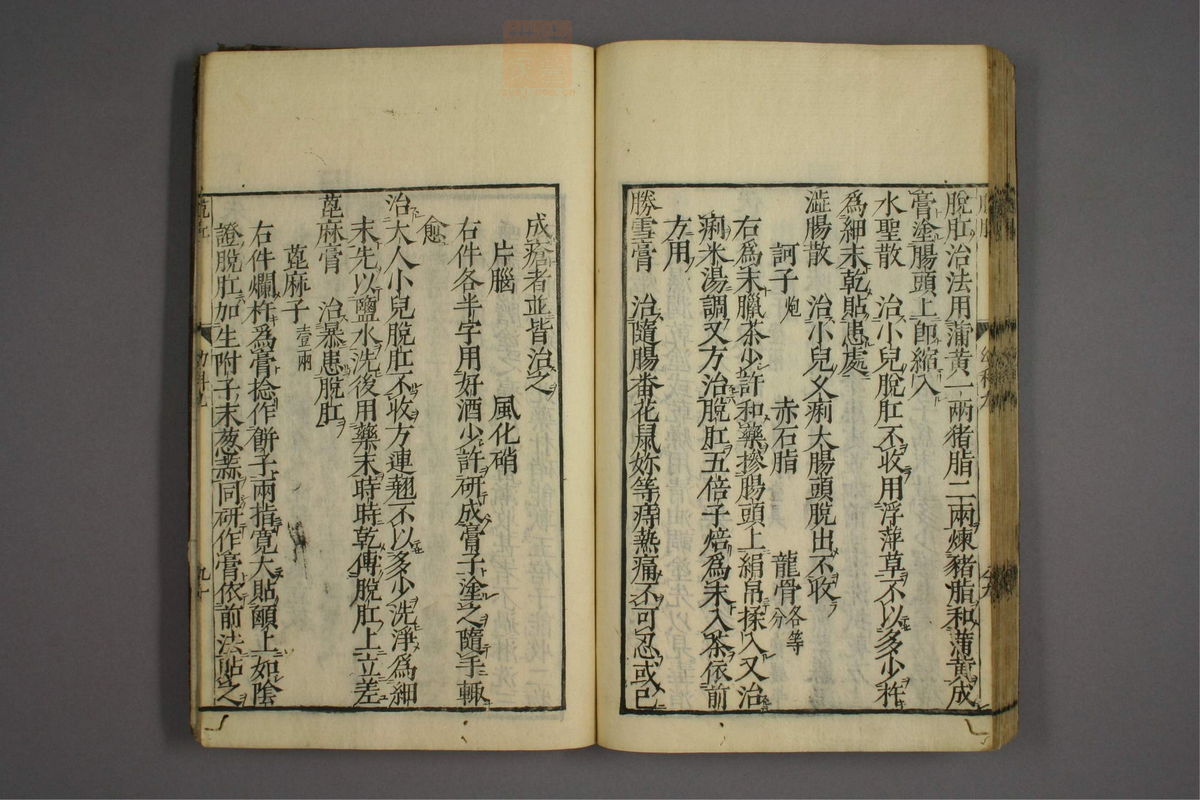 脫肛治法用蒲黃一兩猪脂二兩煉豬脂和蒲黃成
膏塗腸頭上即縮入
水聖散　治小兒脫肛不收用浮萍草不以多少杵
爲細末乾貼患處
澁腸散　治小兒久痢大腸頭脫出不收
訶子炮　赤石脂　龍骨各等分
右爲末臘茶少許和藥摻腸頭上絹帛揉入又治
痢米湯調又方治脫肛五倍子焙爲末入茶依前
方用
勝雪膏　治隨腸番花鼠妳等痔熱痛不可忍或已
成瘡者並皆治之
片腦　風化硝
右件各半字用好酒少許研成膏子塗之隨手輒
愈
治大人小兒脫肛不收方連翹不以多少洗淨爲細
末先以鹽水洗後用藥末時時乾傅脫肛上立差
萞麻膏　治暴患脫肛
萞麻子壹兩
右件爛杵爲膏捻作餅子兩指寬大貼顖上如陰
證脫肛加生附子末葱蒜同研作膏依前法貼之
幼科九
九十